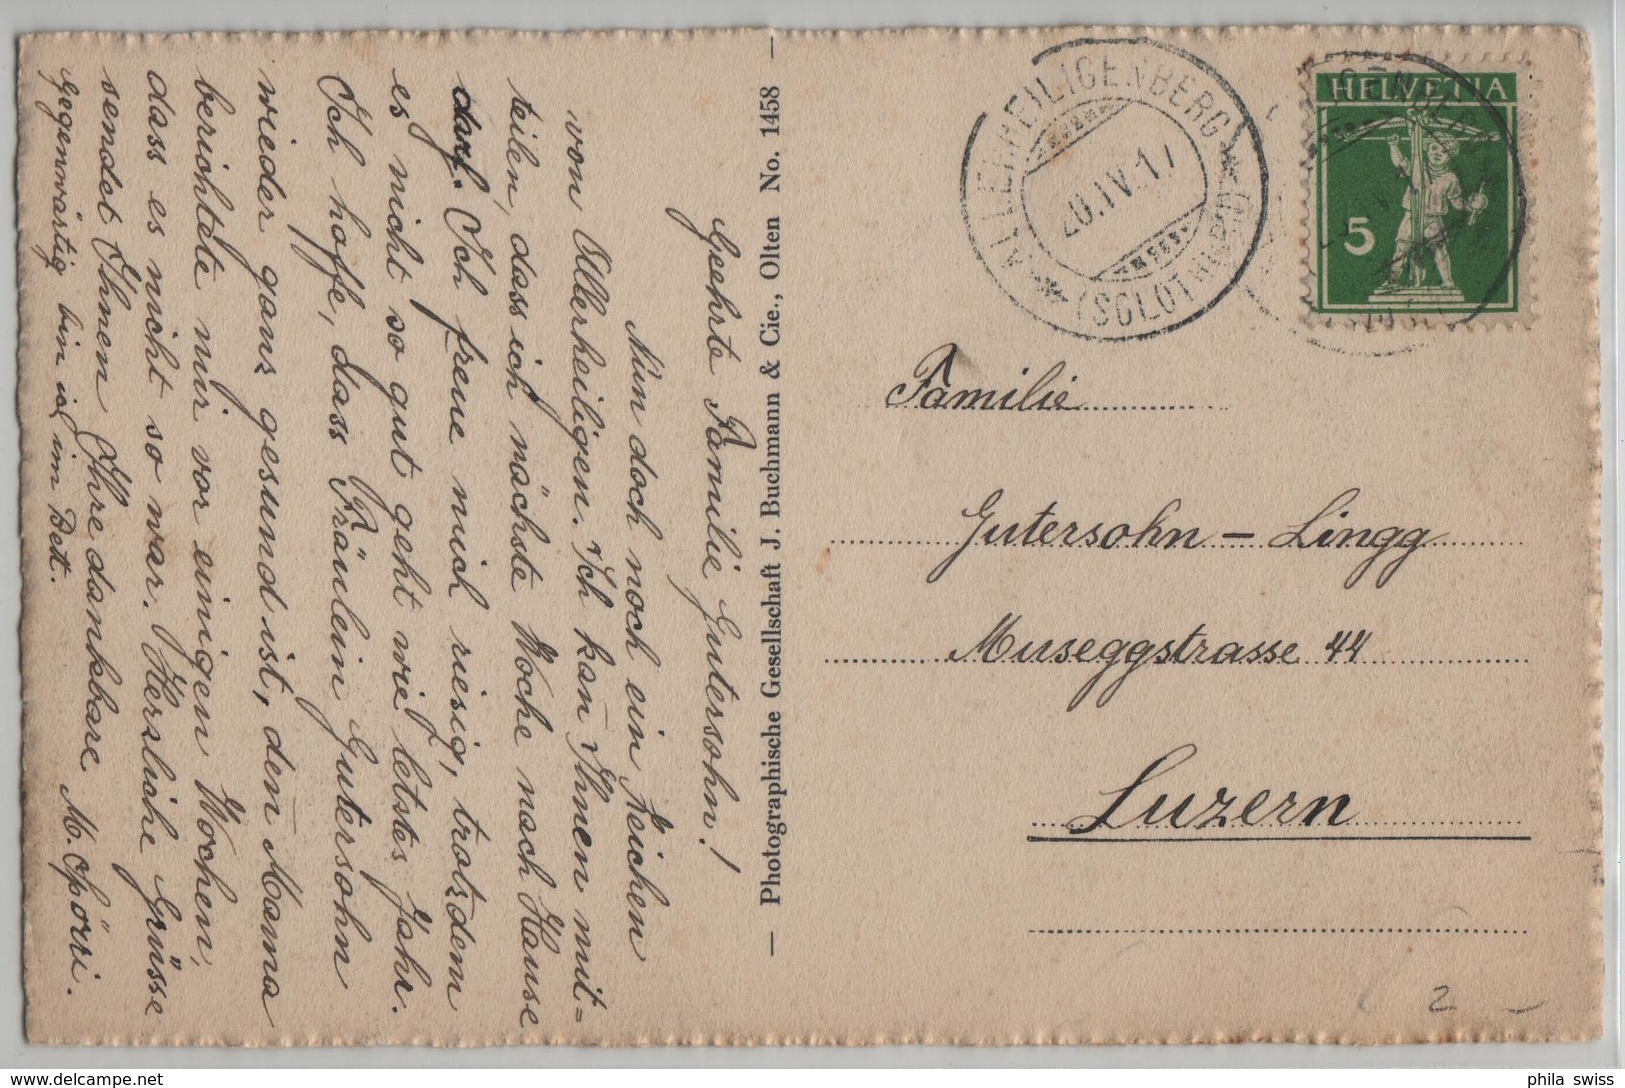 Geehrte Familie Gutersohn!
Nun doch noch ein Zeichen
von Allerheiligen. Ich kan̄ Ihnen mit-
teilen, dass ich nächste Woche nach Hause
darf. Ich freue mich riesig, trotzdem
es nicht so gut geht wie letztes Jahr.
Ich hoffe, dass Fräulein Gutersohn
wieder ganz gesund ist, den̄ Mama
berichtete mir vor einigen Wochen,
dass es nicht so war. Herzliche Grüsse
sendet Ihnen Ihre dankbare M. Spörri.
Gegenwärtig bin ich im Bett.
— Photographische Gesellschaft J. Buchmann & Cie., Olten No. 1458 —
ALLERHEILIGENBERG
(SOLOTHURN)
20.IV.17
HELVETIA
5
Familie
Gutersohn – Lingg
Museggstrasse 44
Luzern
2
phila swiss
www.delcampe.net